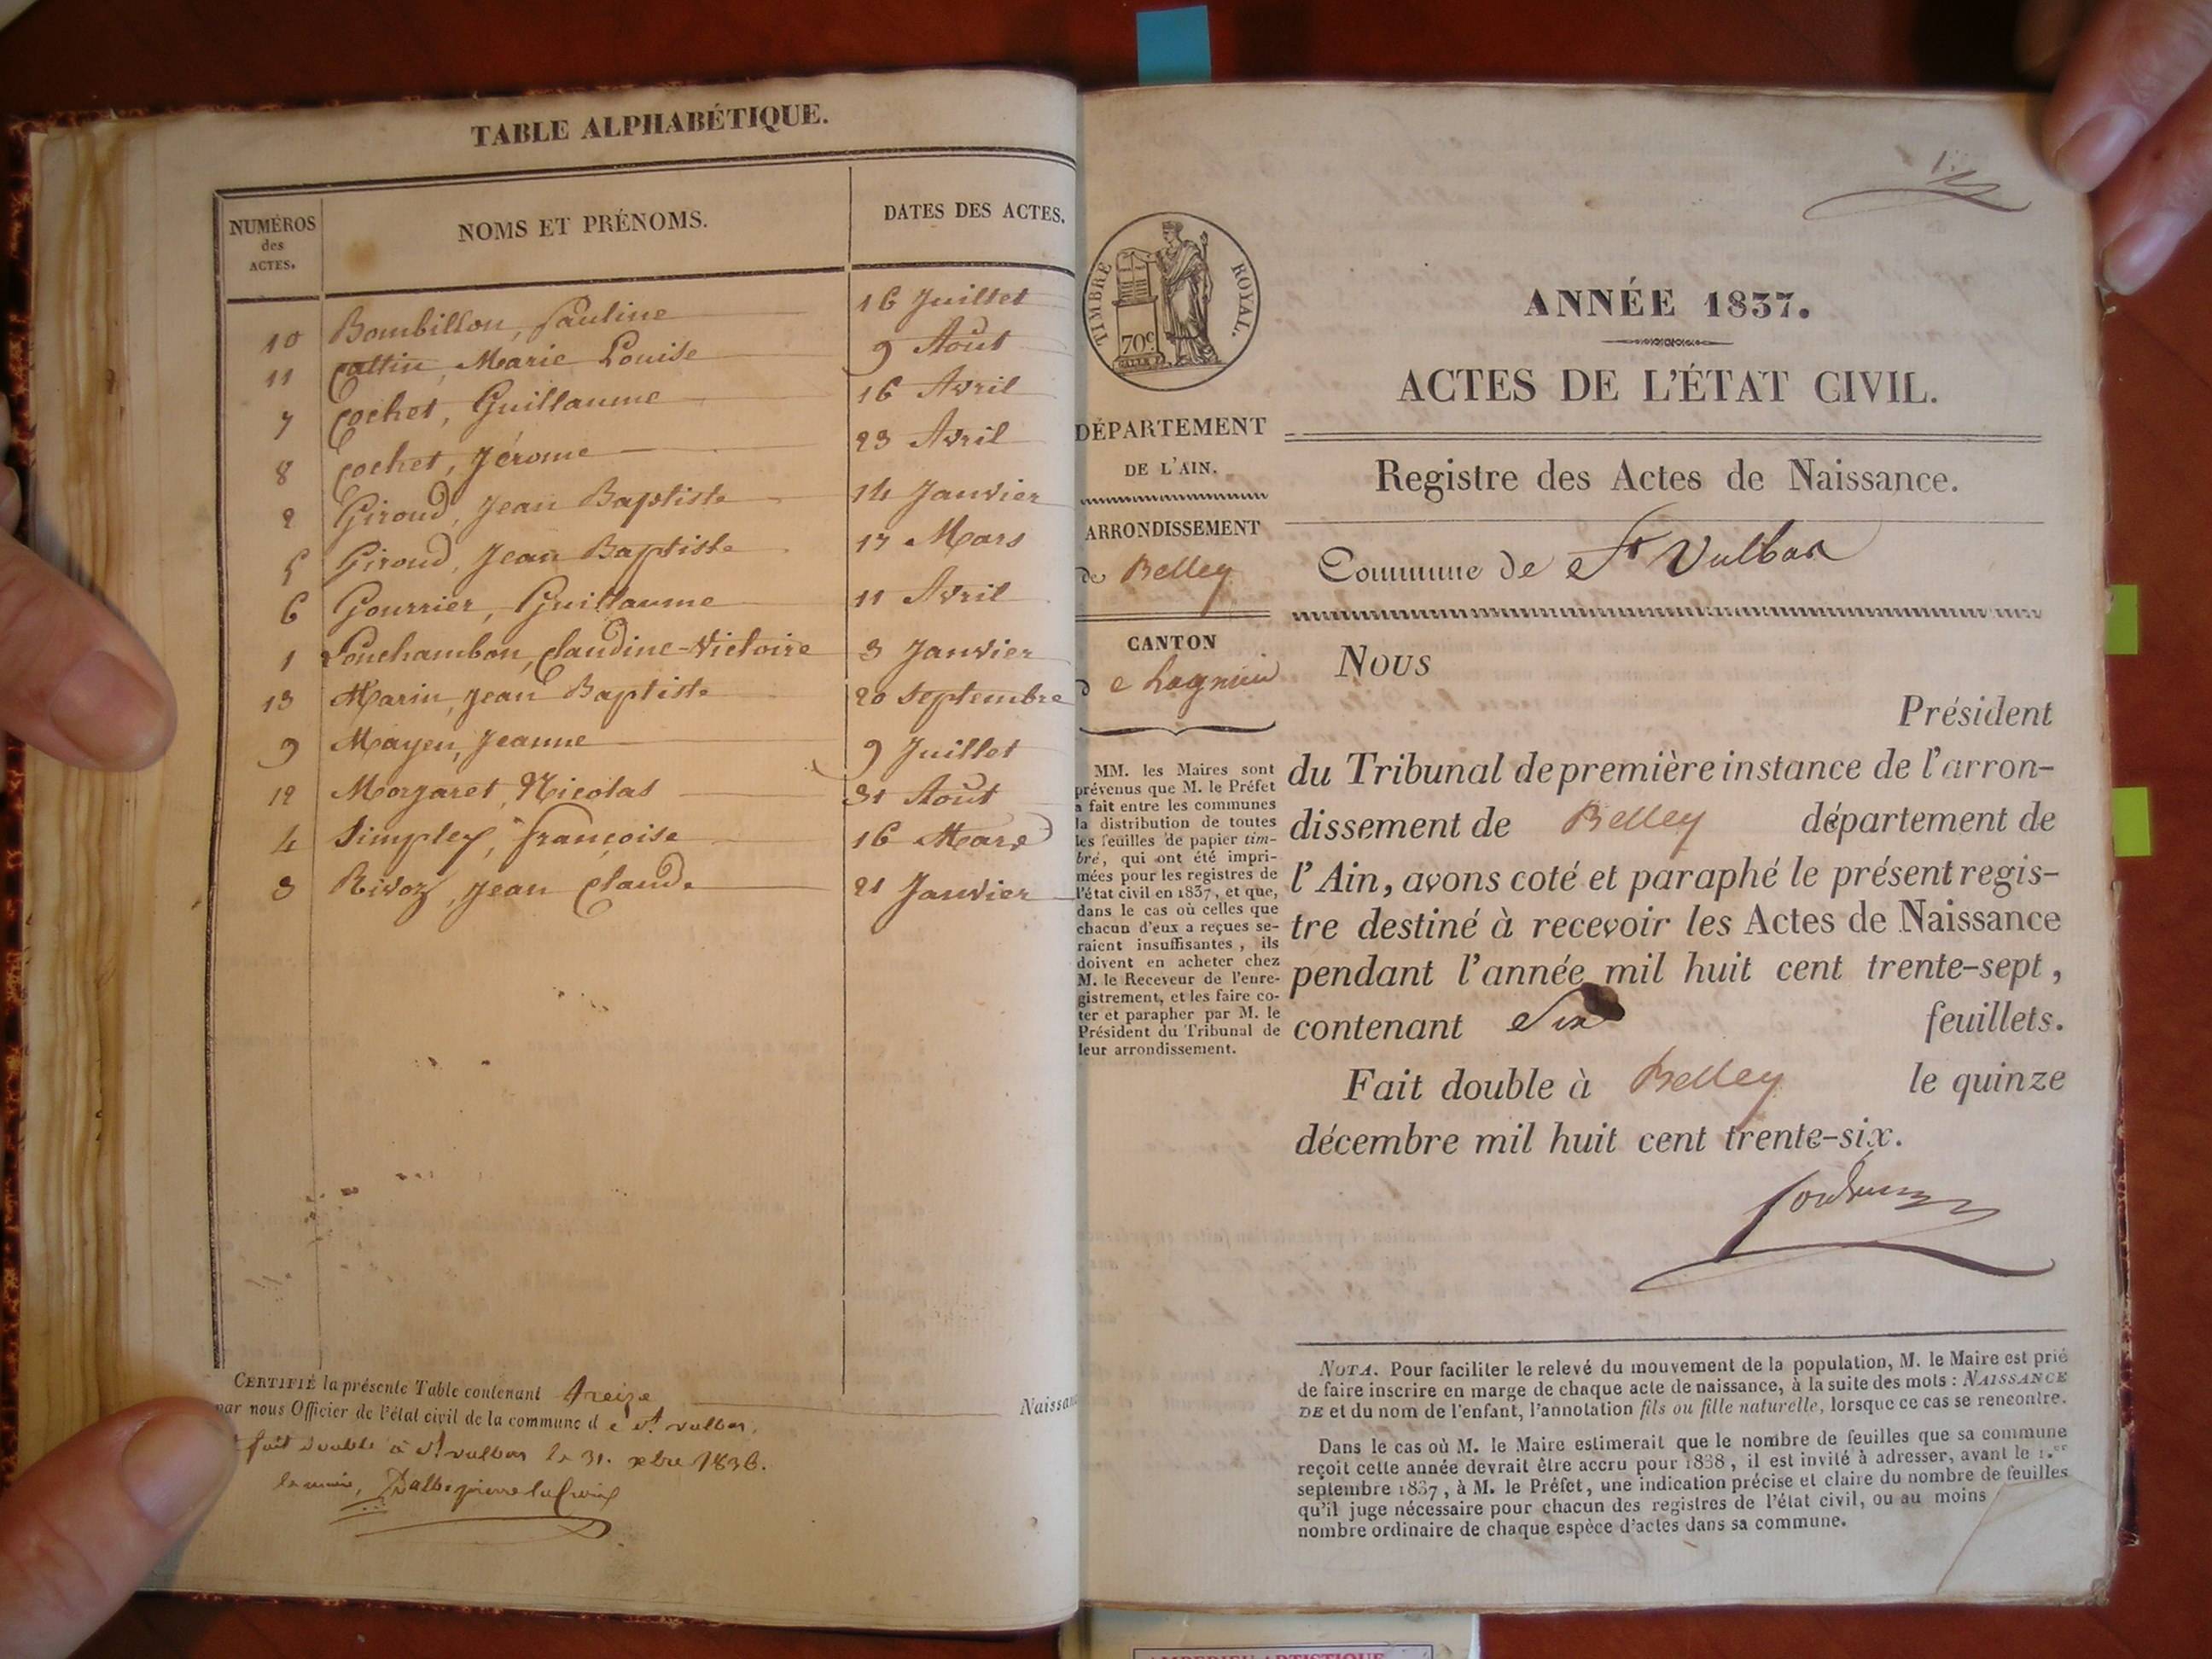 TABLE ALPHABÉTIQUE.
NUMÉROS des ACTES. NOMS ET PRÉNOMS. DATES DES ACTES.
10 Bombillon, Pauline 16 Juillet
11 Cattin, Marie Louise 9 Août
7 Cochet, Guillaume 16 Avril
8 Cochet, Jérome 23 Avril
2 Giroud, Jean Baptiste 14 Janvier
5 Giroud, Jean Baptiste 17 Mars
6 Gourrier, Guillaume 11 Avril
1 Ponchambon, Claudine-Victoire 3 Janvier
13 Marin, Jean Baptiste 20 Septembre
9 Mayen, Jeanne 9 Juillet
12 Morgaret, Nicolas 31 Août
4 Simplex, Françoise 16 Mars
3 Rivoz, Jean Claude 21 Janvier
CERTIFIÉ la présente Table contenant treize Naissan
par nous Officier de l'état civil de la commune d e St vulbas,
fait double à St vulbas le 31. xbre 1836.
le maire,
1.er
TIMBRE ROYAL.
70c.
DÉPARTEMENT
DE L'AIN.
ARRONDISSEMENT
de Belley
CANTON
d e Lagnieu
MM. les Maires sont
prévenus que M. le Préfet
a fait entre les communes
la distribution de toutes
les feuilles de papier tim-
bré, qui ont été impri-
mées pour les registres de
l'état civil en 1837, et que,
dans le cas où celles que
chacun d'eux a reçues se-
raient insuffisantes, ils
doivent en acheter chez
M. le Receveur de l'enre-
gistrement, et les faire co-
ter et parapher par M. le
Président du Tribunal de
leur arrondissement.
ANNÉE 1837.
ACTES DE L'ÉTAT CIVIL.
Registre des Actes de Naissance.
Commune de St Vulbas
Nous
Président
du Tribunal de première instance de l'arron-
dissement de Belley département de
l'Ain, avons coté et paraphé le présent regis-
tre destiné à recevoir les Actes de Naissance
pendant l'année mil huit cent trente-sept,
contenant Six feuillets.
Fait double à Belley le quinze
décembre mil huit cent trente-six.
NOTA. Pour faciliter le relevé du mouvement de la population, M. le Maire est prié
de faire inscrire en marge de chaque acte de naissance, à la suite des mots : NAISSANCE
DE et du nom de l'enfant, l'annotation fils ou fille naturelle, lorsque ce cas se rencontre.
Dans le cas où M. le Maire estimerait que le nombre de feuilles que sa commune
reçoit cette année devrait être accru pour 1838, il est invité à adresser, avant le 1.er
septembre 1837, à M. le Préfet, une indication précise et claire du nombre de feuilles
qu'il juge nécessaire pour chacun des registres de l'état civil, ou au moins
nombre ordinaire de chaque espèce d'actes dans sa commune.
AMBERIEU ARTISTIQUE